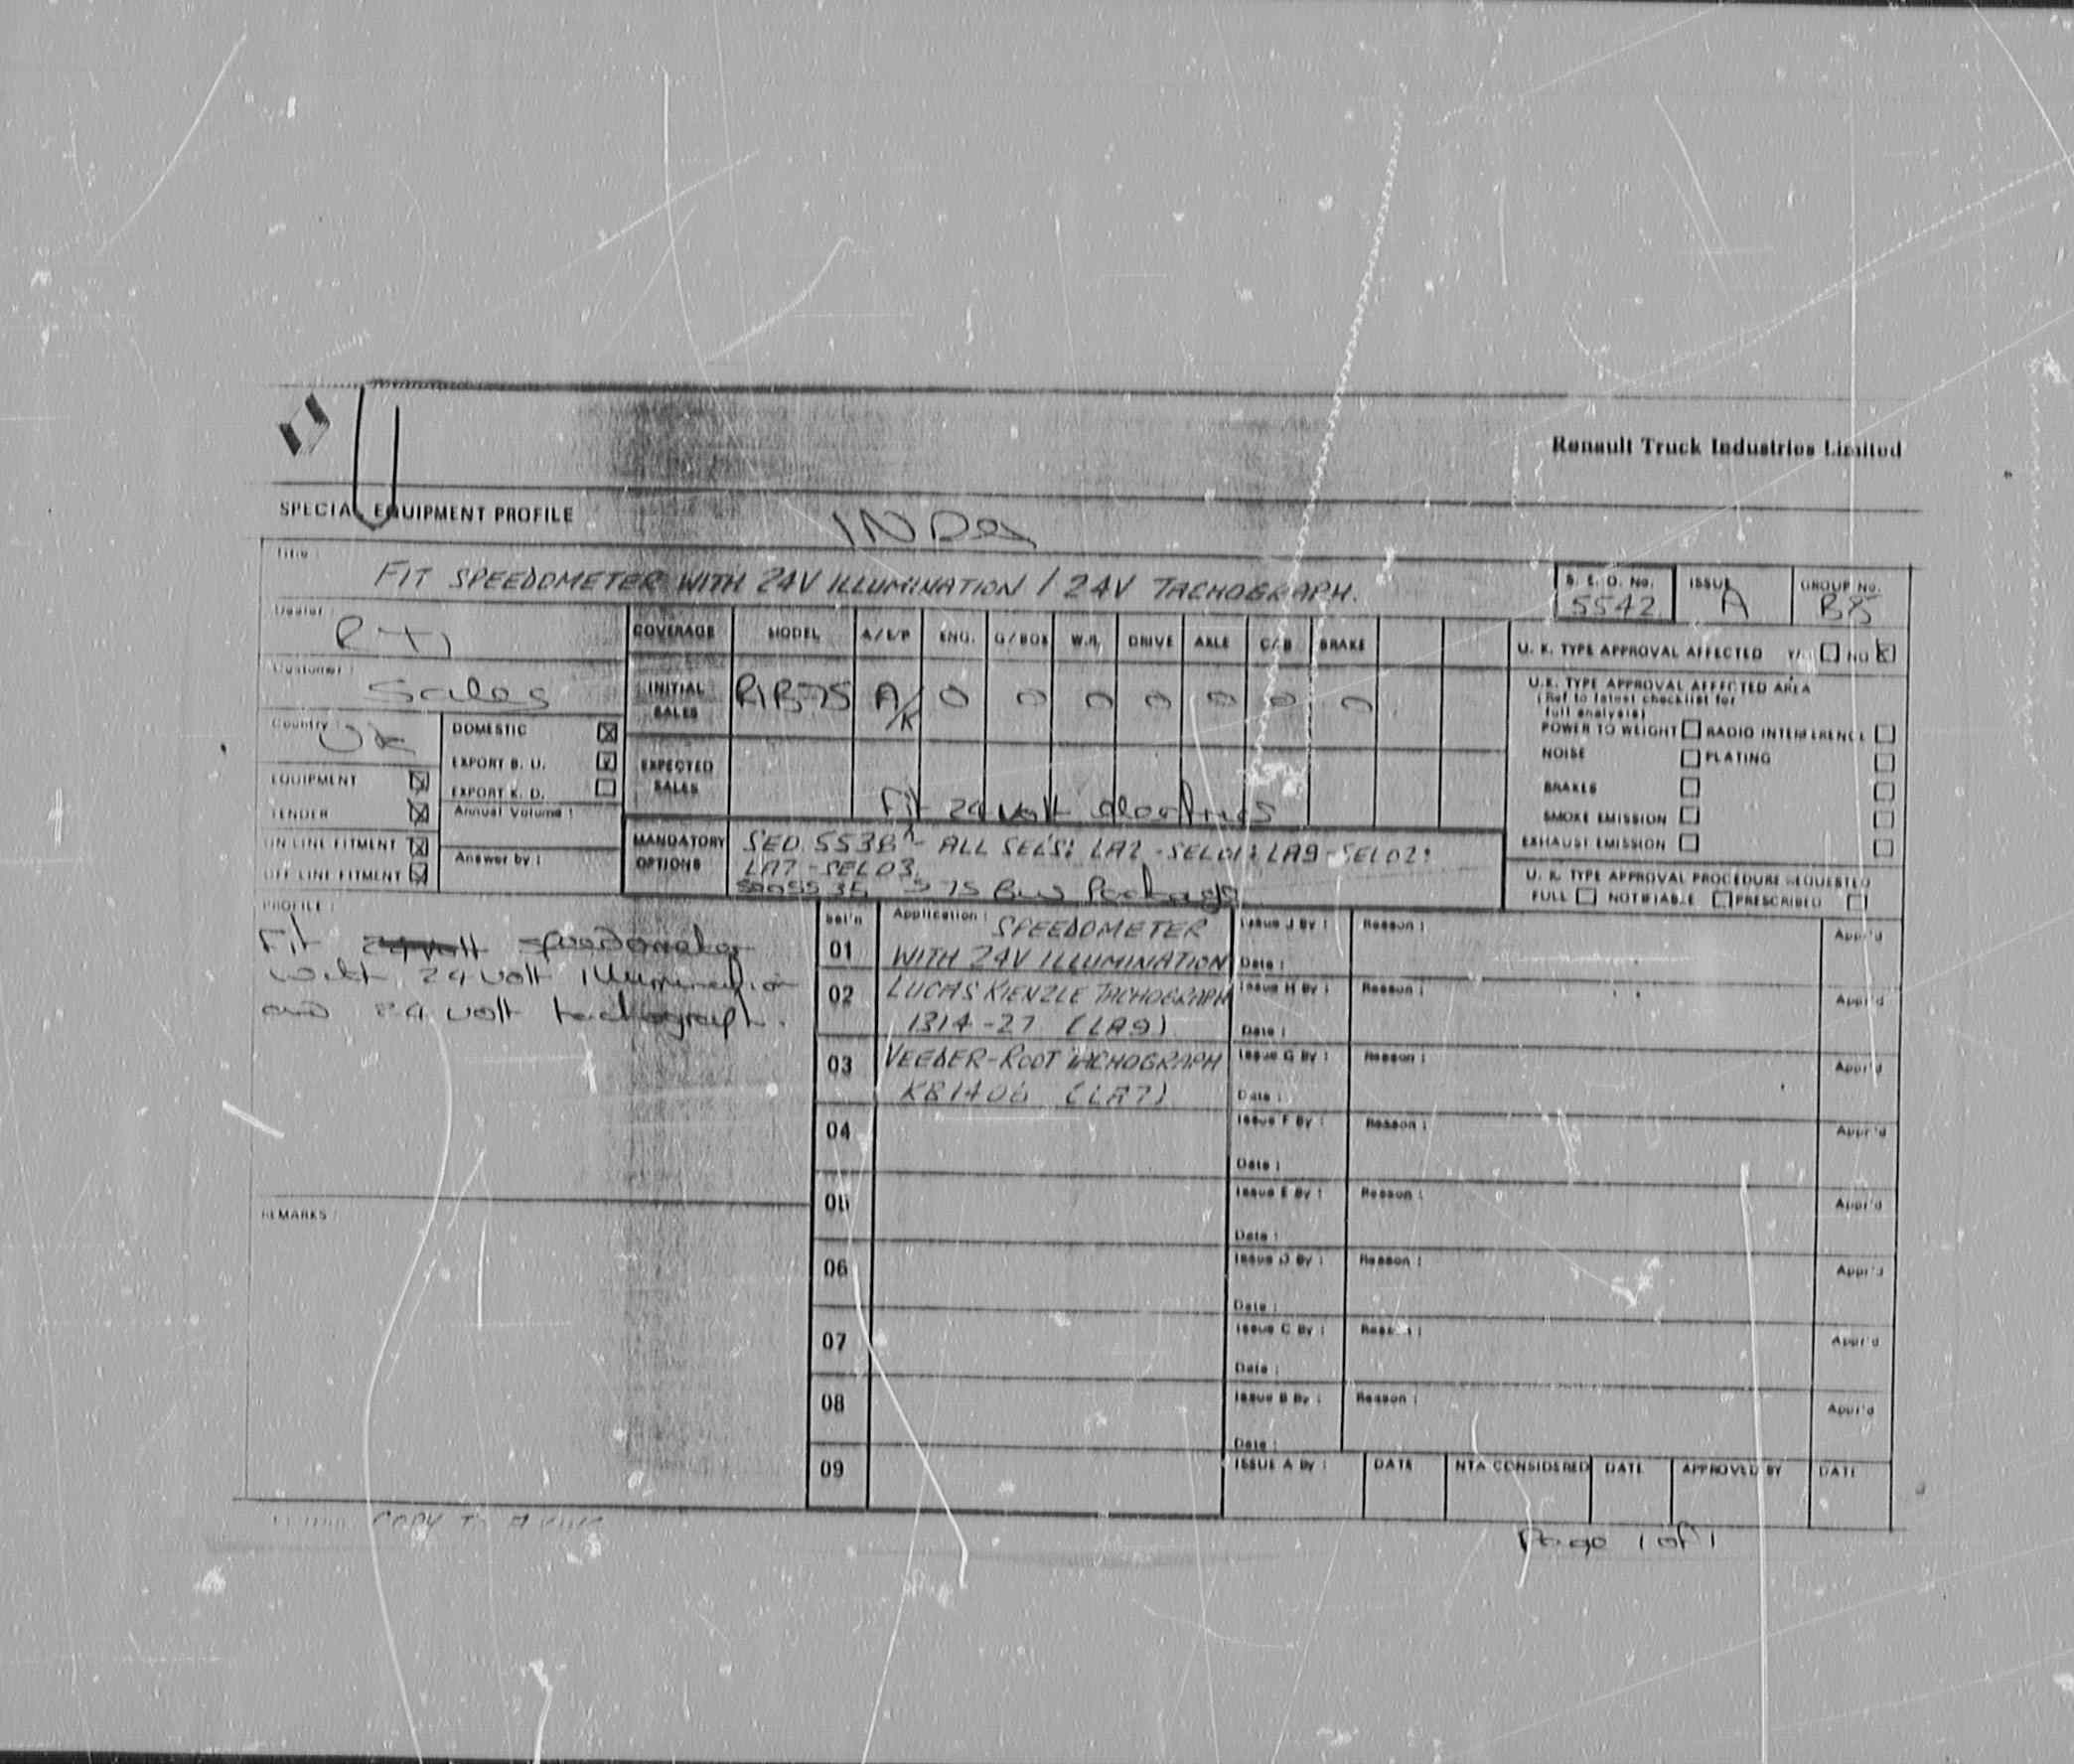 Renault Truck Industries Limited
SPECIAL EQUIPMENT PROFILE
Title :
FIT SPEEDOMETER WITH 24V ILLUMINATION / 24V TACHOGRAPH.
S. E. O. No.
5542
ISSUE
A
GROUP No.
B8
Dealer :
RTI
Customer :
Sales
Country :
UK
DOMESTIC
EXPORT B. U.
EXPORT K. D.
EQUIPMENT
TENDER
ON LINE FITMENT
OFF LINE FITMENT
Annual Volume :
Answer by :
COVERAGE MODEL A/E/P ENG. G/BOX W.B. DRIVE AXLE C/B BRAKE
INITIAL SALES A/K 0 0 0 0 0 0 0
EXPECTED SALES
Fit 24 volt electrics
MANDATORY OPTIONS
SEO 5538 - ALL SEL'S: LA2 - SEL01: LA9 - SEL02:
LA7 - SEL03
U. K. TYPE APPROVAL AFFECTED YES NO
U.K. TYPE APPROVAL AFFECTED AREA
(Ref to latest checklist for
full analysis)
POWER TO WEIGHT RADIO INTERFERENCE
NOISE PLATING
BRAKES
SMOKE EMISSION
EXHAUST EMISSION
U. K. TYPE APPROVAL PROCEDURE REQUESTED
FULL NOTIFIABLE PRESCRIBED
PROFILE :
Fit 24 volt speedometer
with 24 volt illumination
and 24 volt tachograph.
REMARKS :
Sel'n Application :
01 SPEEDOMETER
WITH 24V ILLUMINATION
02 LUCAS KIENZLE TACHOGRAPH
1314-27 (LA9)
03 VEEDER-ROOT TACHOGRAPH
KB1406 (LA7)
04
05
06
07
08
09
Issue J By : Reason : Appr'd
Date :
Issue H By : Reason : Appr'd
Date :
Issue G By : Reason : Appr'd
Date :
Issue F By : Reason : Appr'd
Date :
Issue E By : Reason : Appr'd
Date :
Issue D By : Reason : Appr'd
Date :
Issue C By : Reason : Appr'd
Date :
Issue B By : Reason : Appr'd
Date :
ISSUE A By : DATE NTA CONSIDERED DATE APPROVED BY DATE
COPY TO
Page 1 of 1